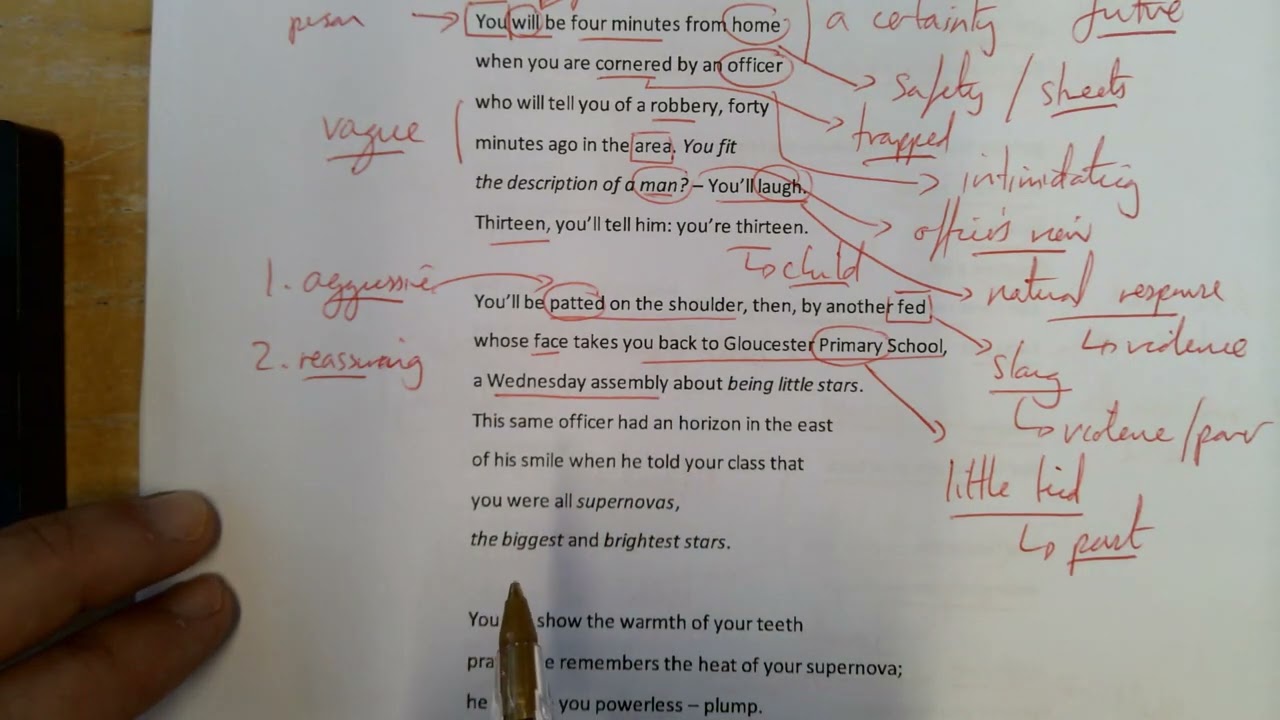 person → You will be four minutes from home a certainty future
when you are cornered by an officer safety / sheets
who will tell you of a robbery, forty
vague minutes ago in the area. You fit trapped
the description of a man? – You'll laugh. intimidating
Thirteen, you'll tell him: you're thirteen. officer's view
↳ child
1. aggressive You'll be patted on the shoulder, then, by another fed natural response
↳ violence
2. reassuring whose face takes you back to Gloucester Primary School, slang
a Wednesday assembly about being little stars.
This same officer had an horizon in the east ↳ violence /
of his smile when he told your class that little kid
you were all supernovas,
the biggest and brightest stars. ↳ past
You show the warmth of your teeth
pra e remembers the heat of your supernova;
he you powerless – plump.